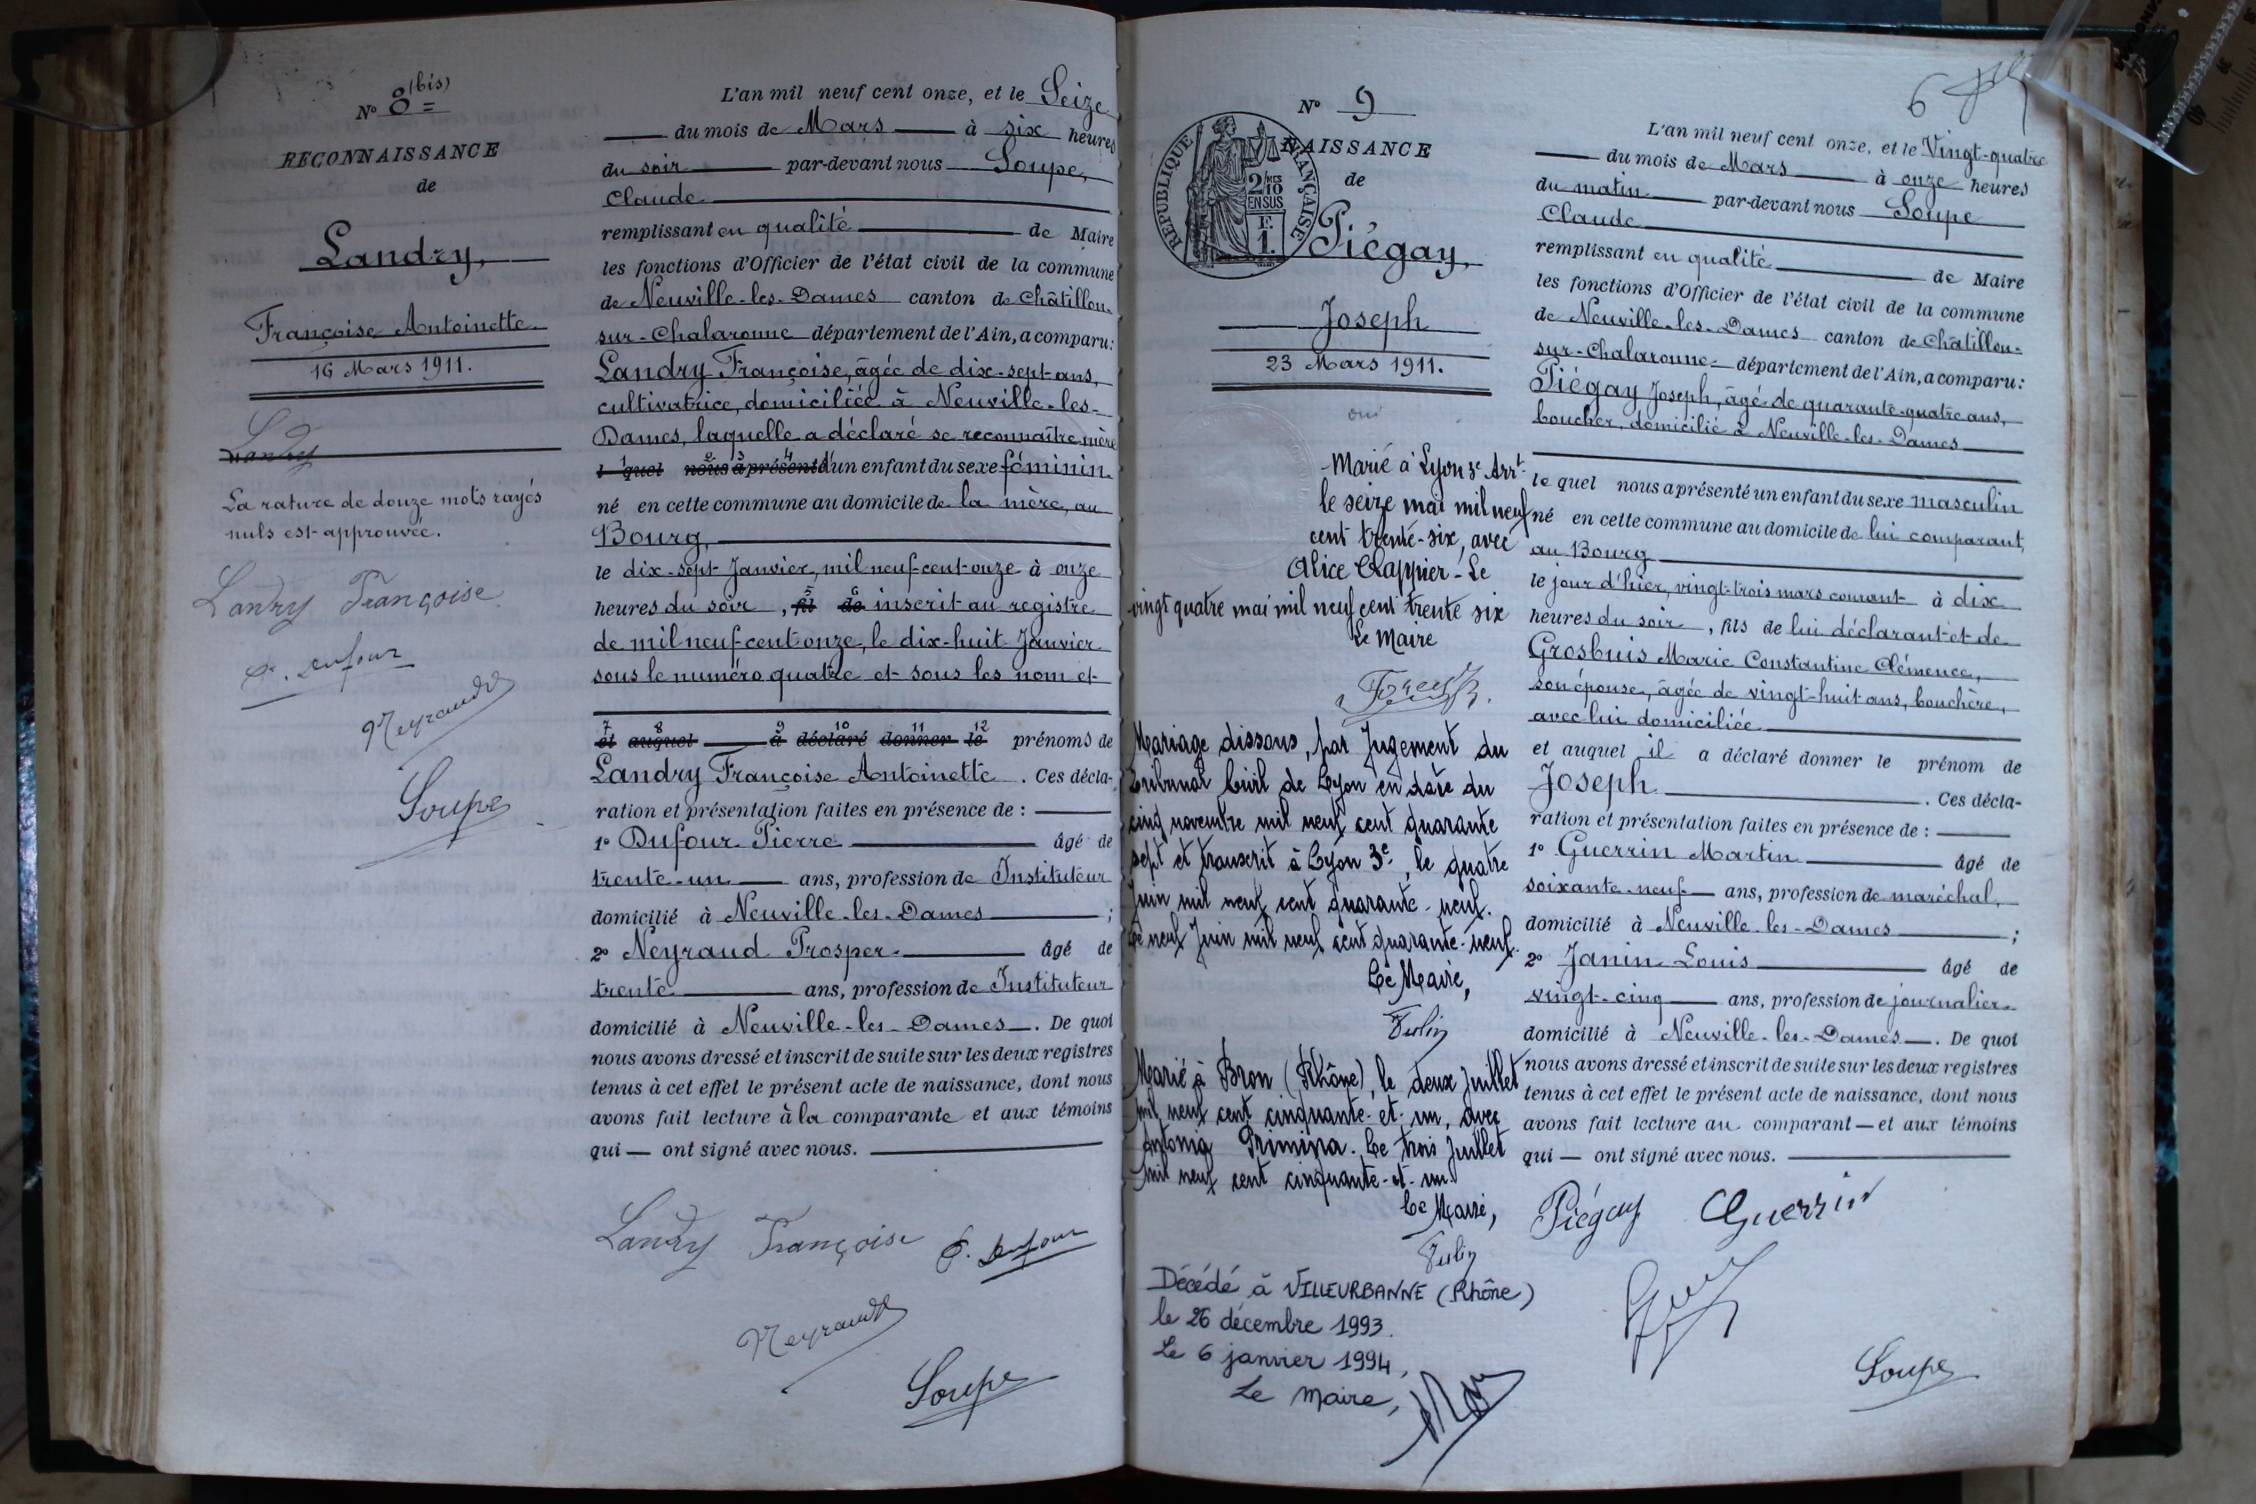 N° 8 (bis) =
RECONNAISSANCE
de
Landry,
Françoise Antoinette
16 Mars 1911.
Landry
La rature de douze mots rayés
nuls est approuvée.
Landry Françoise
P. Dufour
Neyraud
Soupe
L'an mil neuf cent onze, et le Seize
du mois de Mars à six heures
du soir par-devant nous Soupe,
Claude
remplissant en qualité de Maire
les fonctions d'Officier de l'état civil de la commune
de Neuville-les-Dames canton de Châtillon-
sur-Chalaronne département de l'Ain, a comparu:
Landry Françoise, âgée de dix-sept ans,
cultivatrice, domiciliée à Neuville-les-
Dames, laquelle a déclaré se reconnaître mère
1 2 3 4
l quel nous a présenté d'un enfant du sexe féminin
né en cette commune au domicile de la mère, au
Bourg,
le dix-sept Janvier, mil neuf-cent-onze à onze
5 6
heures du soir , fil de inscrit au registre
de mil neuf-cent onze, le dix-huit Janvier
sous le numéro quatre et sous les nom et
7 8 9 10 11 12
et auquel à déclaré donner le prénoms de
Landry Françoise Antoinette . Ces décla-
ration et présentation faites en présence de :
1° Dufour Pierre âgé de
trente-un ans, profession de Instituteur
domicilié à Neuville-les-Dames ;
2° Neyraud Prosper âgé de
trente ans, profession de Instituteur
domicilié à Neuville-les-Dames . De quoi
nous avons dressé et inscrit de suite sur les deux registres
tenus à cet effet le présent acte de naissance, dont nous
avons fait lecture à la comparante et aux témoins
qui — ont signé avec nous.
Landry Françoise P. Dufour
Neyraud
Soupe
N° 9
RÉPUBLIQUE FRANÇAISE
2/10 MES
EN SUS
F.
1.
NAISSANCE
de
Piégay,
Joseph
23 Mars 1911.
oui
Marié à Lyon 3e Arrt
le seize mai mil neuf
cent trente-six, avec
Alice Clappier - Le
vingt quatre mai mil neuf cent trente six
Le Maire
Mariage dissous, par Jugement du
Tribunal Civil de Lyon en date du
cinq novembre mil neuf cent quarante
sept et transcrit à Lyon 3e, le quatre
Juin mil neuf cent quarante-neuf.
Le neuf Juin mil neuf cent quarante-neuf.
Le Maire,
Marié à Bron (Rhône), le deux Juillet
mil neuf cent cinquante-et-un, avec
Antonia Primina. Le trois Juillet
mil neuf cent cinquante-et-un
Le Maire,
Décédé à VILLEURBANNE (Rhône)
le 26 décembre 1993.
Le 6 janvier 1994,
Le Maire,
6
L'an mil neuf cent onze, et le Vingt-quatre
du mois de Mars à onze heures
du matin par-devant nous Soupe
Claude
remplissant en qualité de Maire
les fonctions d'Officier de l'état civil de la commune
de Neuville-les-Dames canton de Châtillon-
sur-Chalaronne département de l'Ain, a comparu:
Piégay Joseph, âgé de quarante-quatre ans,
boucher, domicilié à Neuville-les-Dames
le quel nous a présenté un enfant du sexe masculin
né en cette commune au domicile de lui comparant,
au Bourg
le jour d'hier, vingt-trois mars courant à dix
heures du soir , fils de lui déclarant et de
Grosbuis Marie Constantine Clémence,
son épouse, âgée de vingt-huit ans, bouchère,
avec lui domiciliée
et auquel il a déclaré donner le prénom de
Joseph . Ces décla-
ration et présentation faites en présence de :
1° Guerrin Martin âgé de
soixante-neuf ans, profession de maréchal,
domicilié à Neuville-les-Dames ;
2° Janin Louis âgé de
vingt-cinq ans, profession de journalier
domicilié à Neuville-les-Dames . De quoi
nous avons dressé et inscrit de suite sur les deux registres
tenus à cet effet le présent acte de naissance, dont nous
avons fait lecture au comparant — et aux témoins
qui — ont signé avec nous.
Piégay Guerrin
Soupe